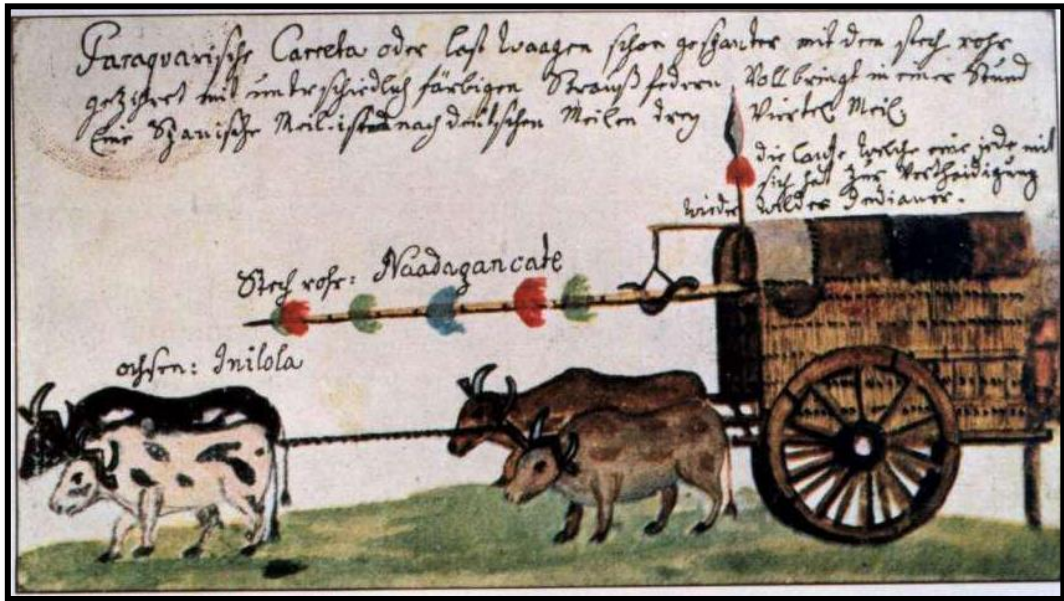 Paraquarische Carreta oder last Waagen schon gespanter mit dem stech rohr
geziehret mit unterschiedlich färbigen Strauß federn Vollbringt in einer Stund
Eine Spanische Meil. ist nach deutschen Meilen drey Viertel Meil.
die lantze welche eine jede mit
sich hat zur Vertheidigung
wieder wilder Indianer.
Stech rohr: Naadagancate
ochsen: Inilola